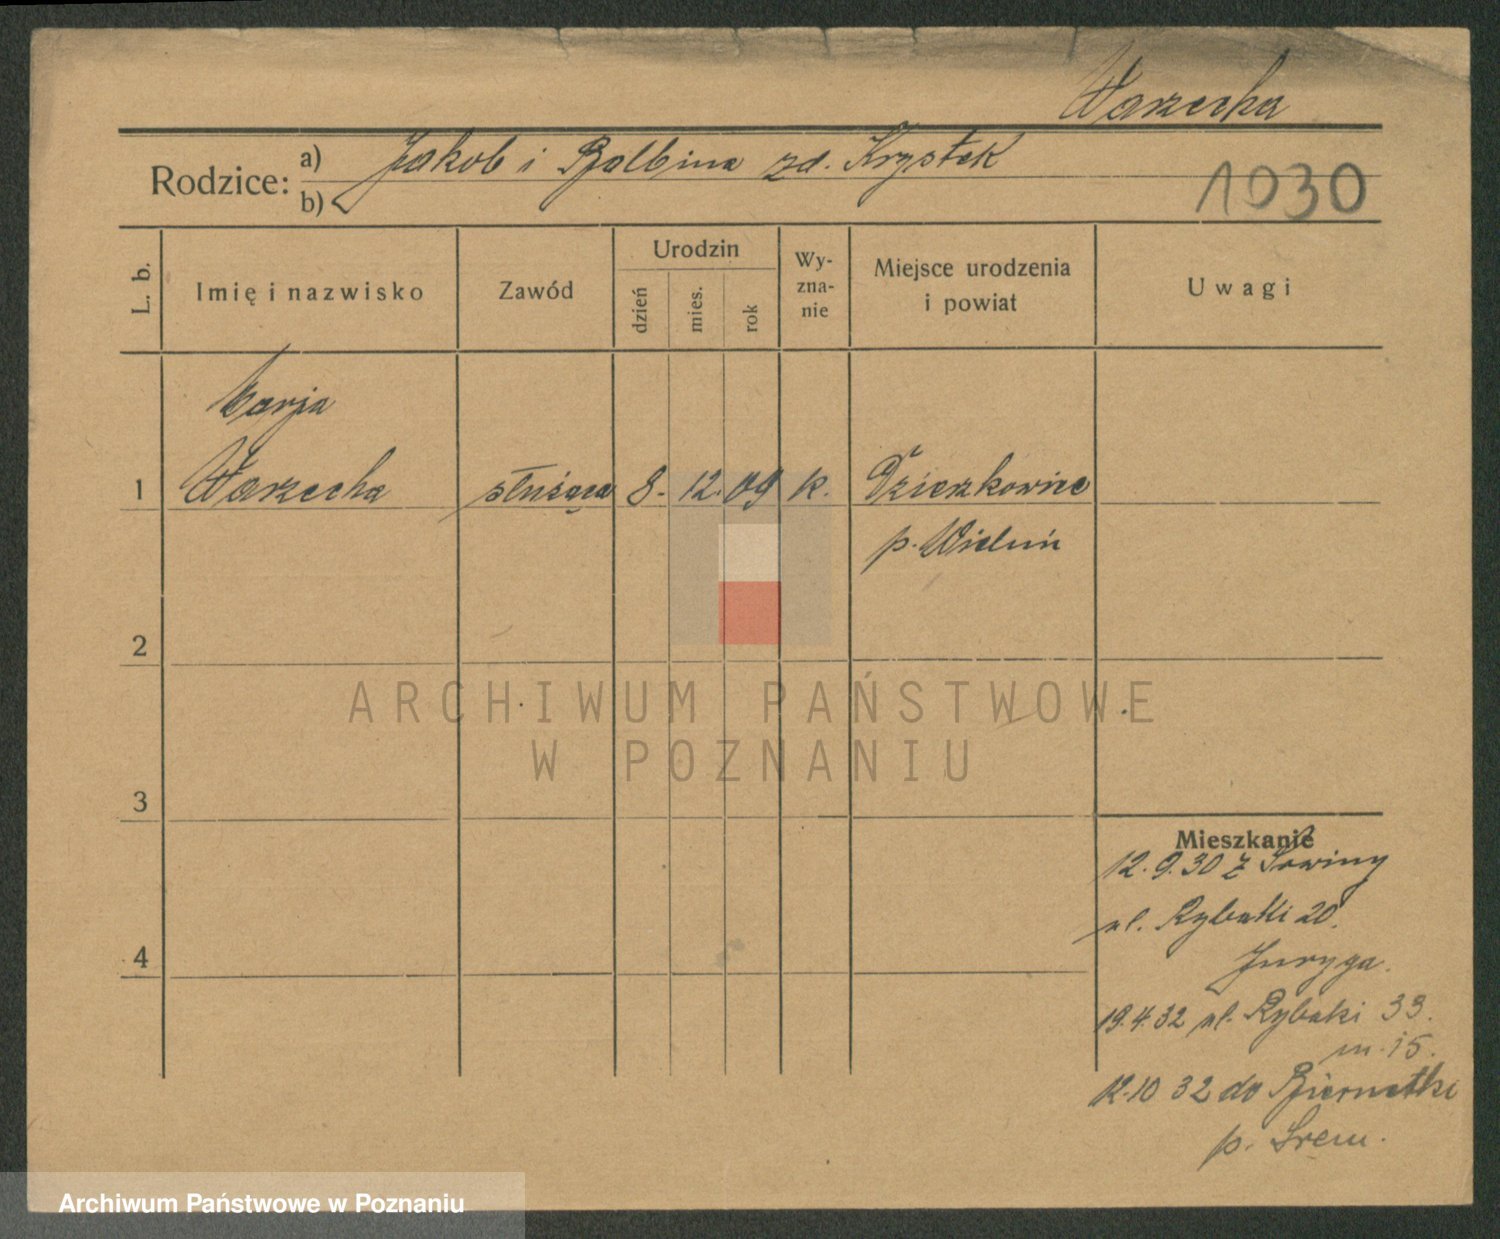 Warzecha
Rodzice: a) Jakob i Balbina zd. Krystek
b)
1930
L. b.
Imię i nazwisko
Zawód
Urodzin
dzień
mies.
rok
Wy-
zna-
nie
Miejsce urodzenia
i powiat
Uwagi
Marja
1 Warzecha służąca 8. 12. 09 k.
p. Wieluń
2
3
4
ARCHIWUM PAŃSTWOWE
W POZNANIU
Mieszkanie
12.9.30 z Sowiny
ul. Rybaki 20.
Juryga.
19.4.32 ul. Rybaki 33.
m. 15.
12.10 32 do Biernatki
p. Śrem.
Archiwum Państwowe w Poznaniu